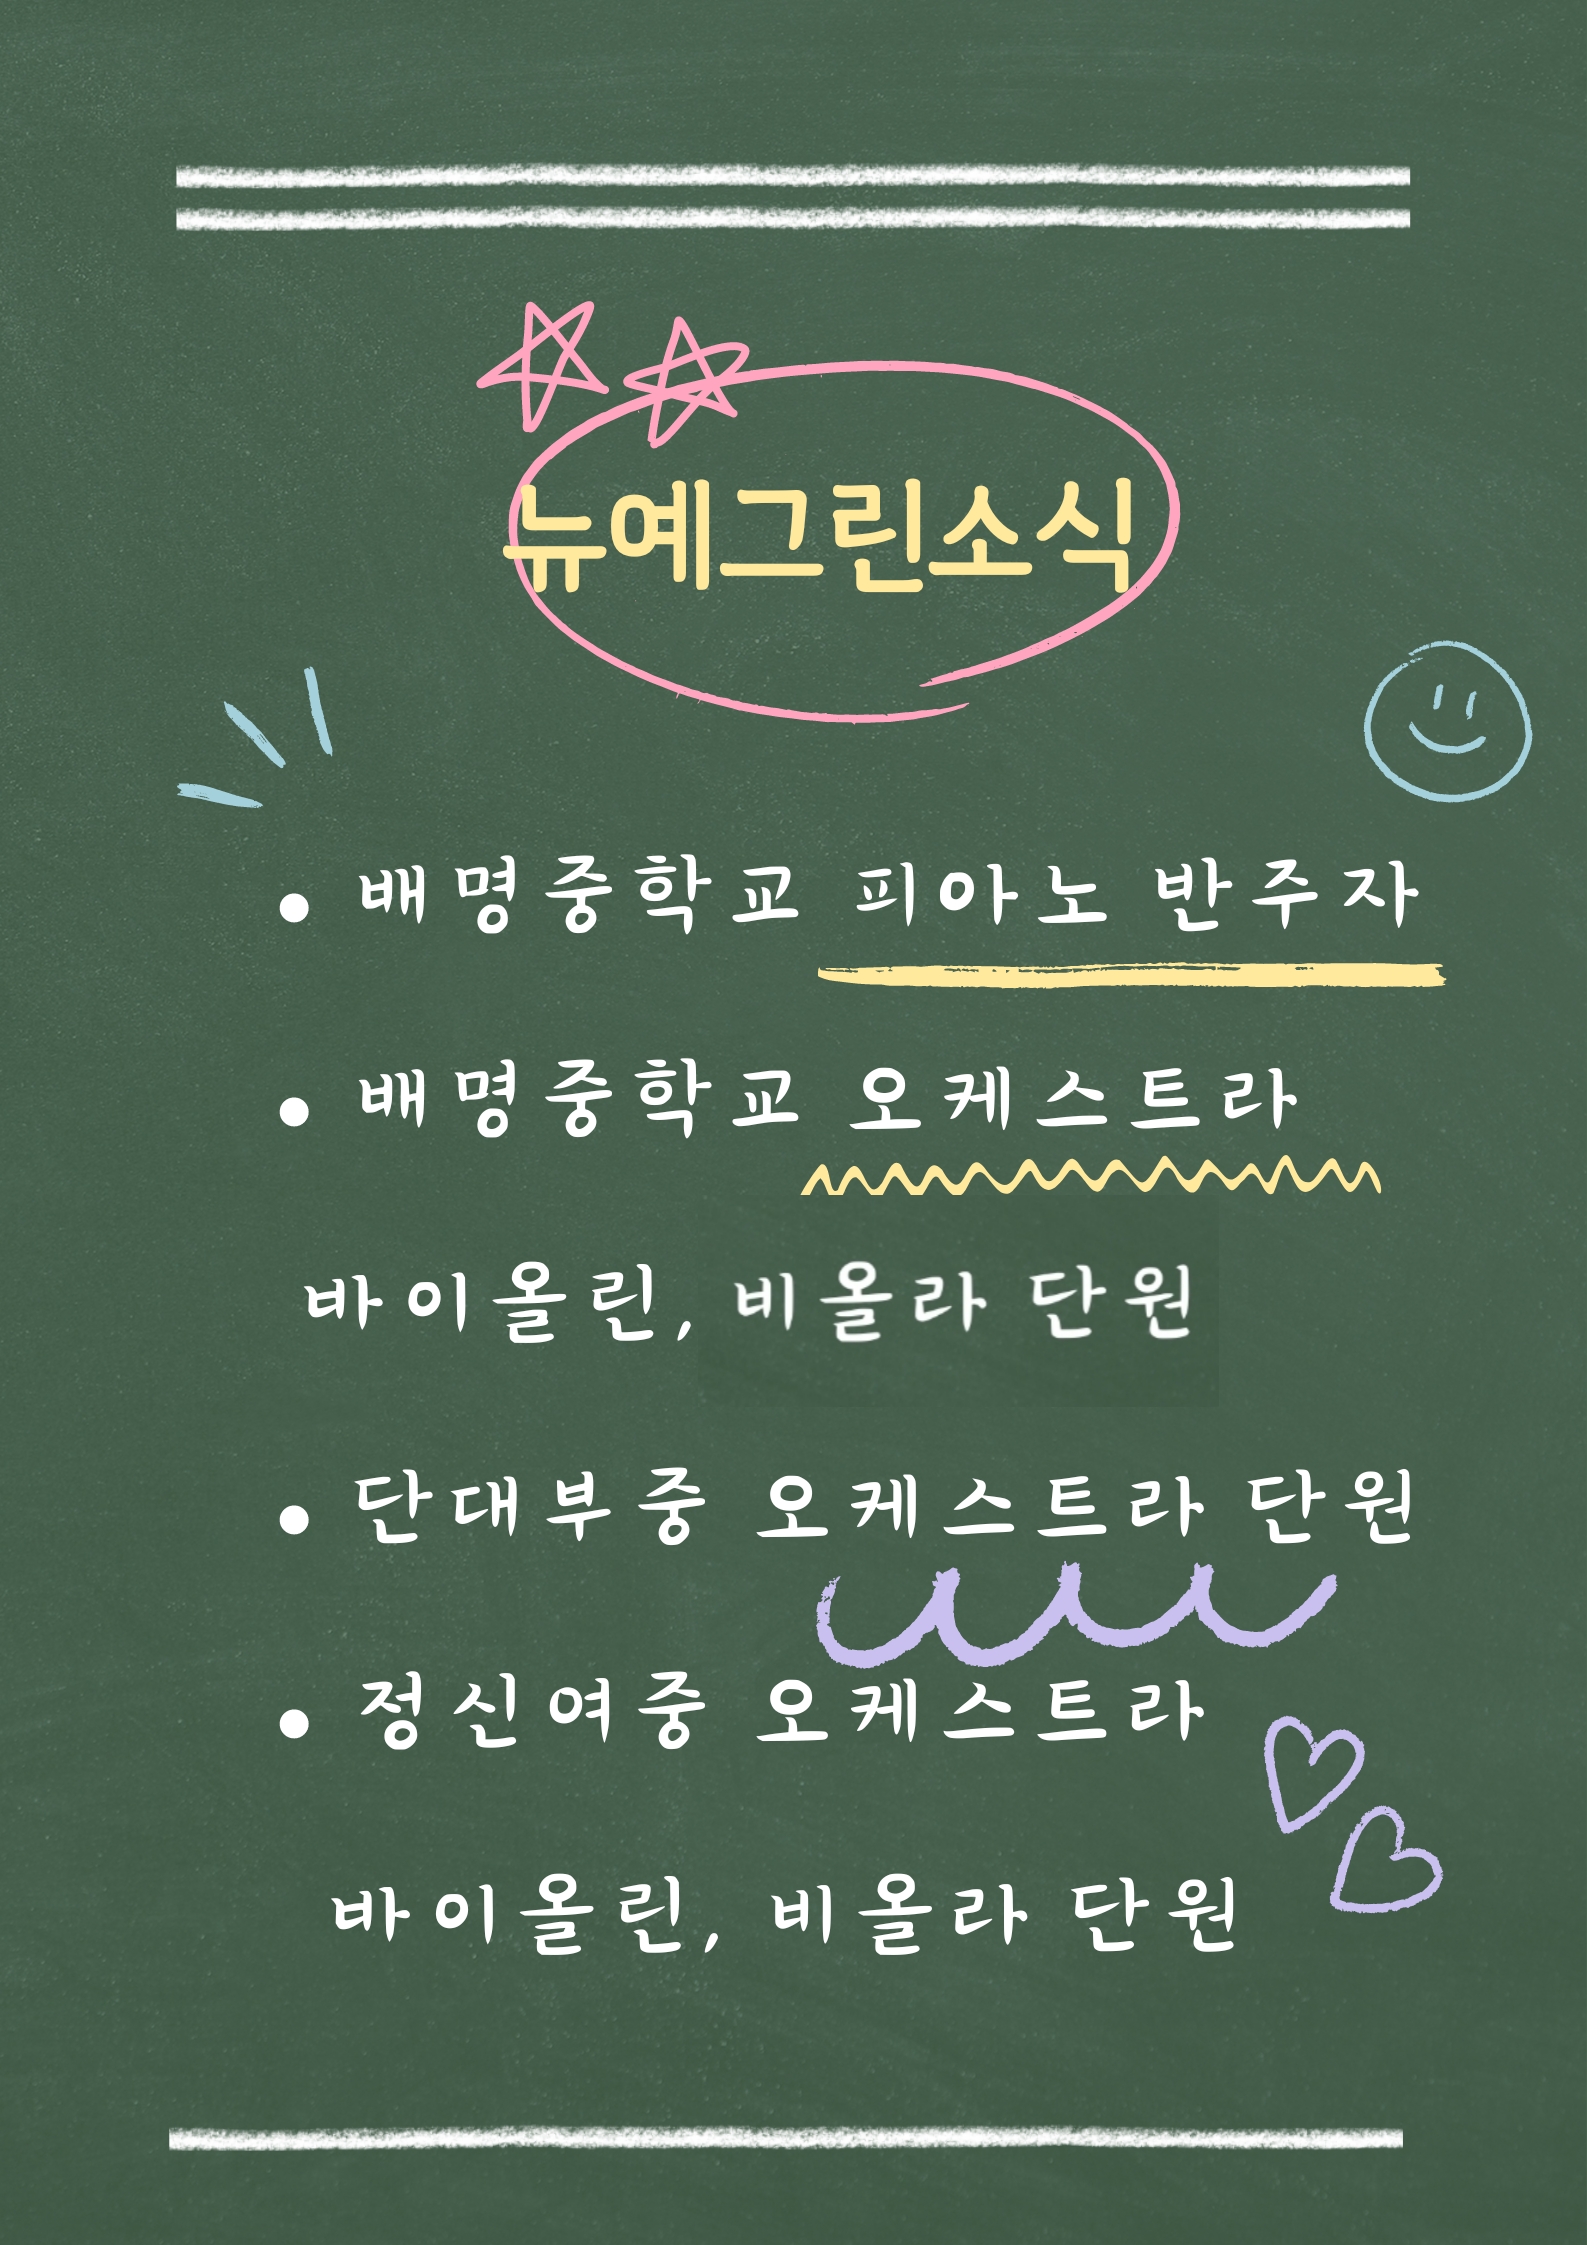 뉴예그린소식
• 배명중학교 피아노 반주자
• 배명중학교 오케스트라
바이올린, 비올라 단원
• 단대부중 오케스트라 단원
• 정신여중 오케스트라
바이올린, 비올라 단원